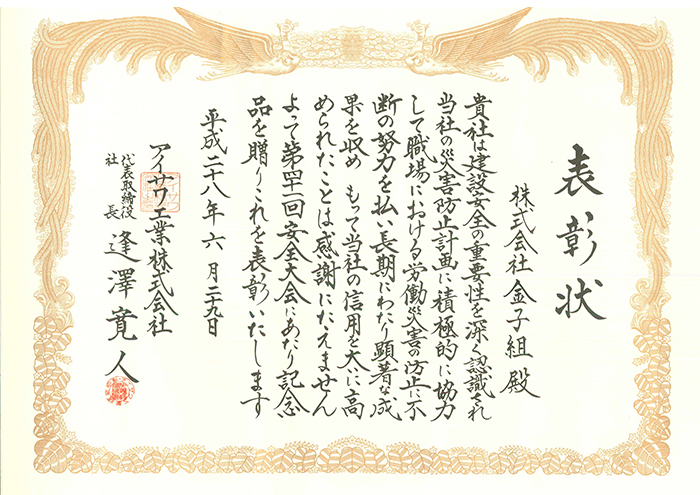 表彰状
株式会社金子組殿
貴社は建設安全の重要性を深く認識され
当社の災害防止計画に積極的に協力
して職場における労働災害の防止に不
断の努力を払い長期にわたり顕著な成
果を収め もって当社の信用を大いに高
められたことは感謝にたえません
よって第四十一回安全大会にあたり記念
品を贈りこれを表彰いたします
平成二十八年六月二十九日
アイサワ工業株式会社
代表取締役
社長 逢澤寛人